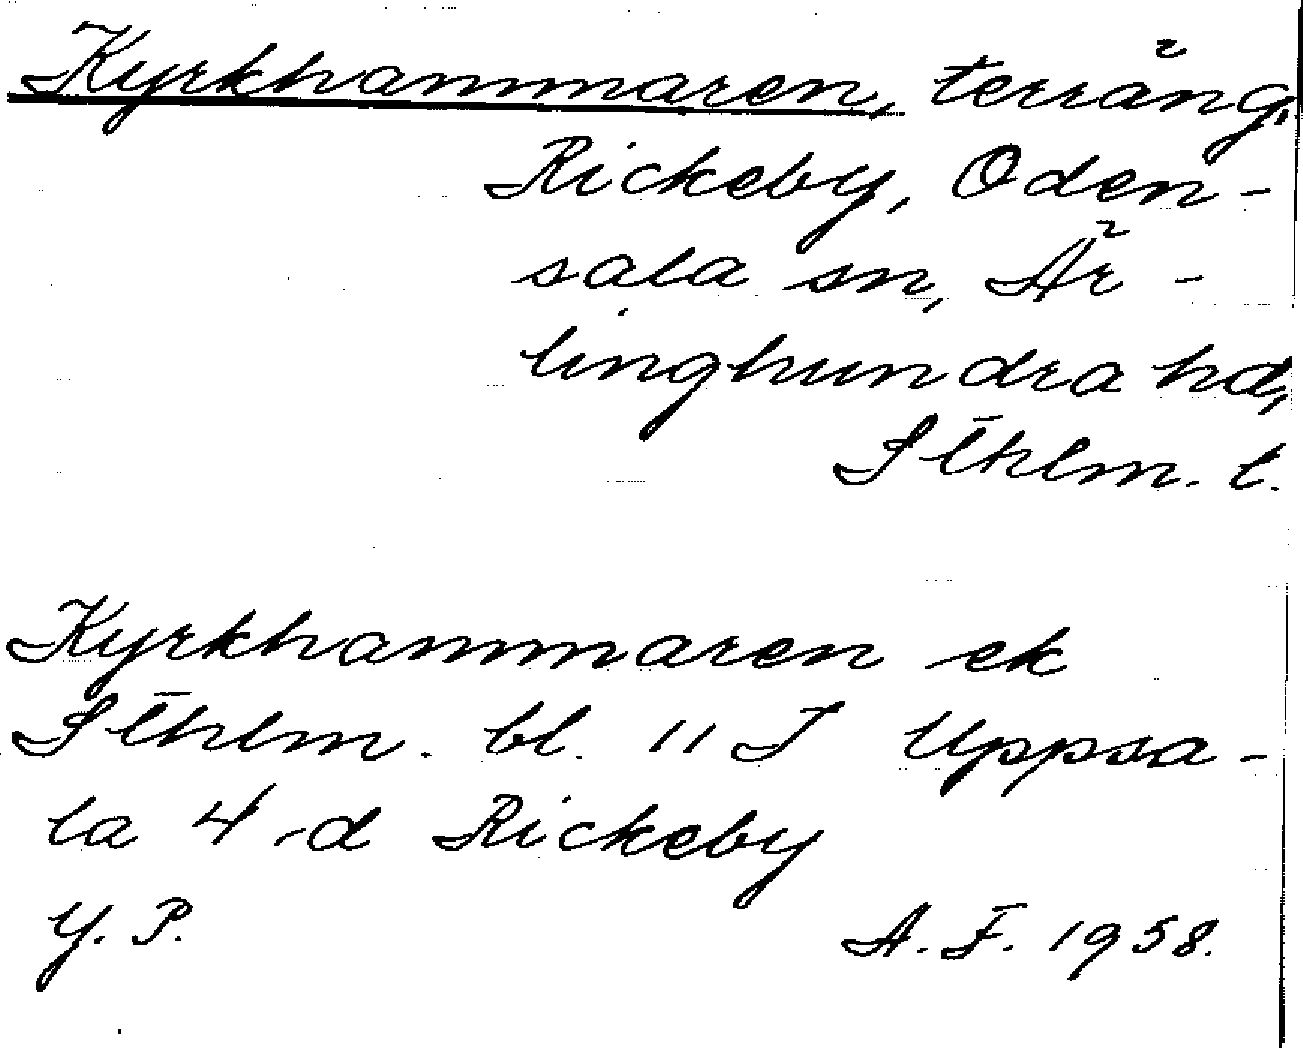 Kyrkhammaren, terräng,
Rickeby, Oden-
sala sn, Är-
linghundra hd,
Sthlm. l.
Kyrkhammaren ek
Sthlm. bl. 11 I Uppsa-
la 4 -d Rickeby
Y. P. A. F. 1958.